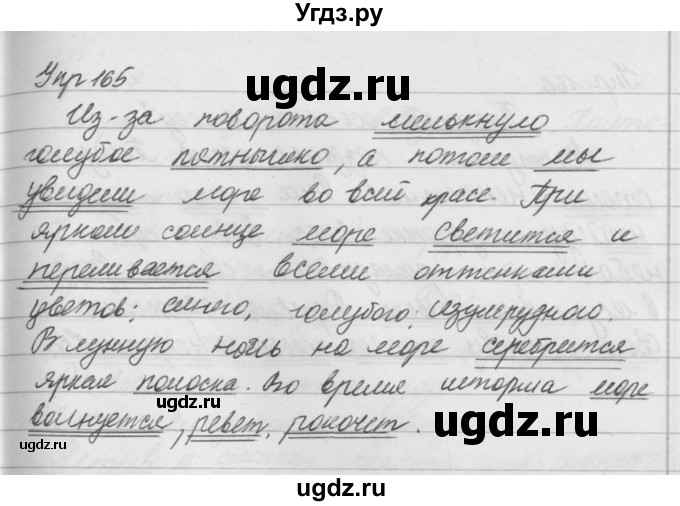 Угдз.ру
Упр 165
ugdz.ru
Из-за поворота мелькнуло
голубое пятнышко, а потом мы
увидели море во всей красе. При
ярком солнце море светится и
переливается всеми оттенками
цветов: синего, голубого, изумрудного.
В лунную ночь на море серебрится
яркая полоска. Во время шторма море
волнуется, ревет, рокочет.
ugdz.ru
ugdz.ru
ugdz.ru
ugdz.ru